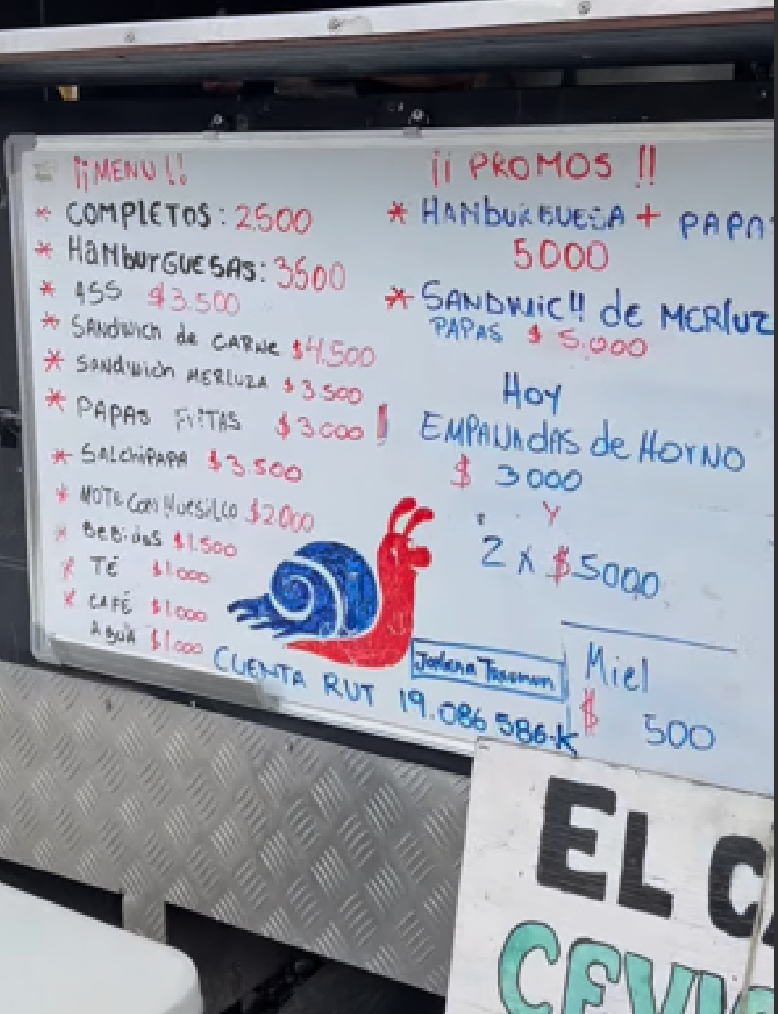 ¡¡MENU!!
* COMPLETOS: 2500
* HAMBURGUESAS: 3500
* ASS $3.500
* SANDWICH de CARNE $4.500
* SANDWICH MERLUZA $3.500
* PAPAS FRITAS $3.000!
* SALCHIPAPA $3.500
* MOTE CON HUESILLO $2000
* BEBIDAS $1.500
* TÉ $1.000
* CAFÉ $1.000
AGUA $1.000
¡¡ PROMOS !!
* HAMBURGUESA + PAPA
5000
* SANDWICH de MERLUZ
PAPAS $ 5.000
Hoy
EMPANADAS de HORNO
$ 3000
Y
2 x $5000
Miel
$ 500
CUENTA RUT 19.086586-K
EL C
CEVI